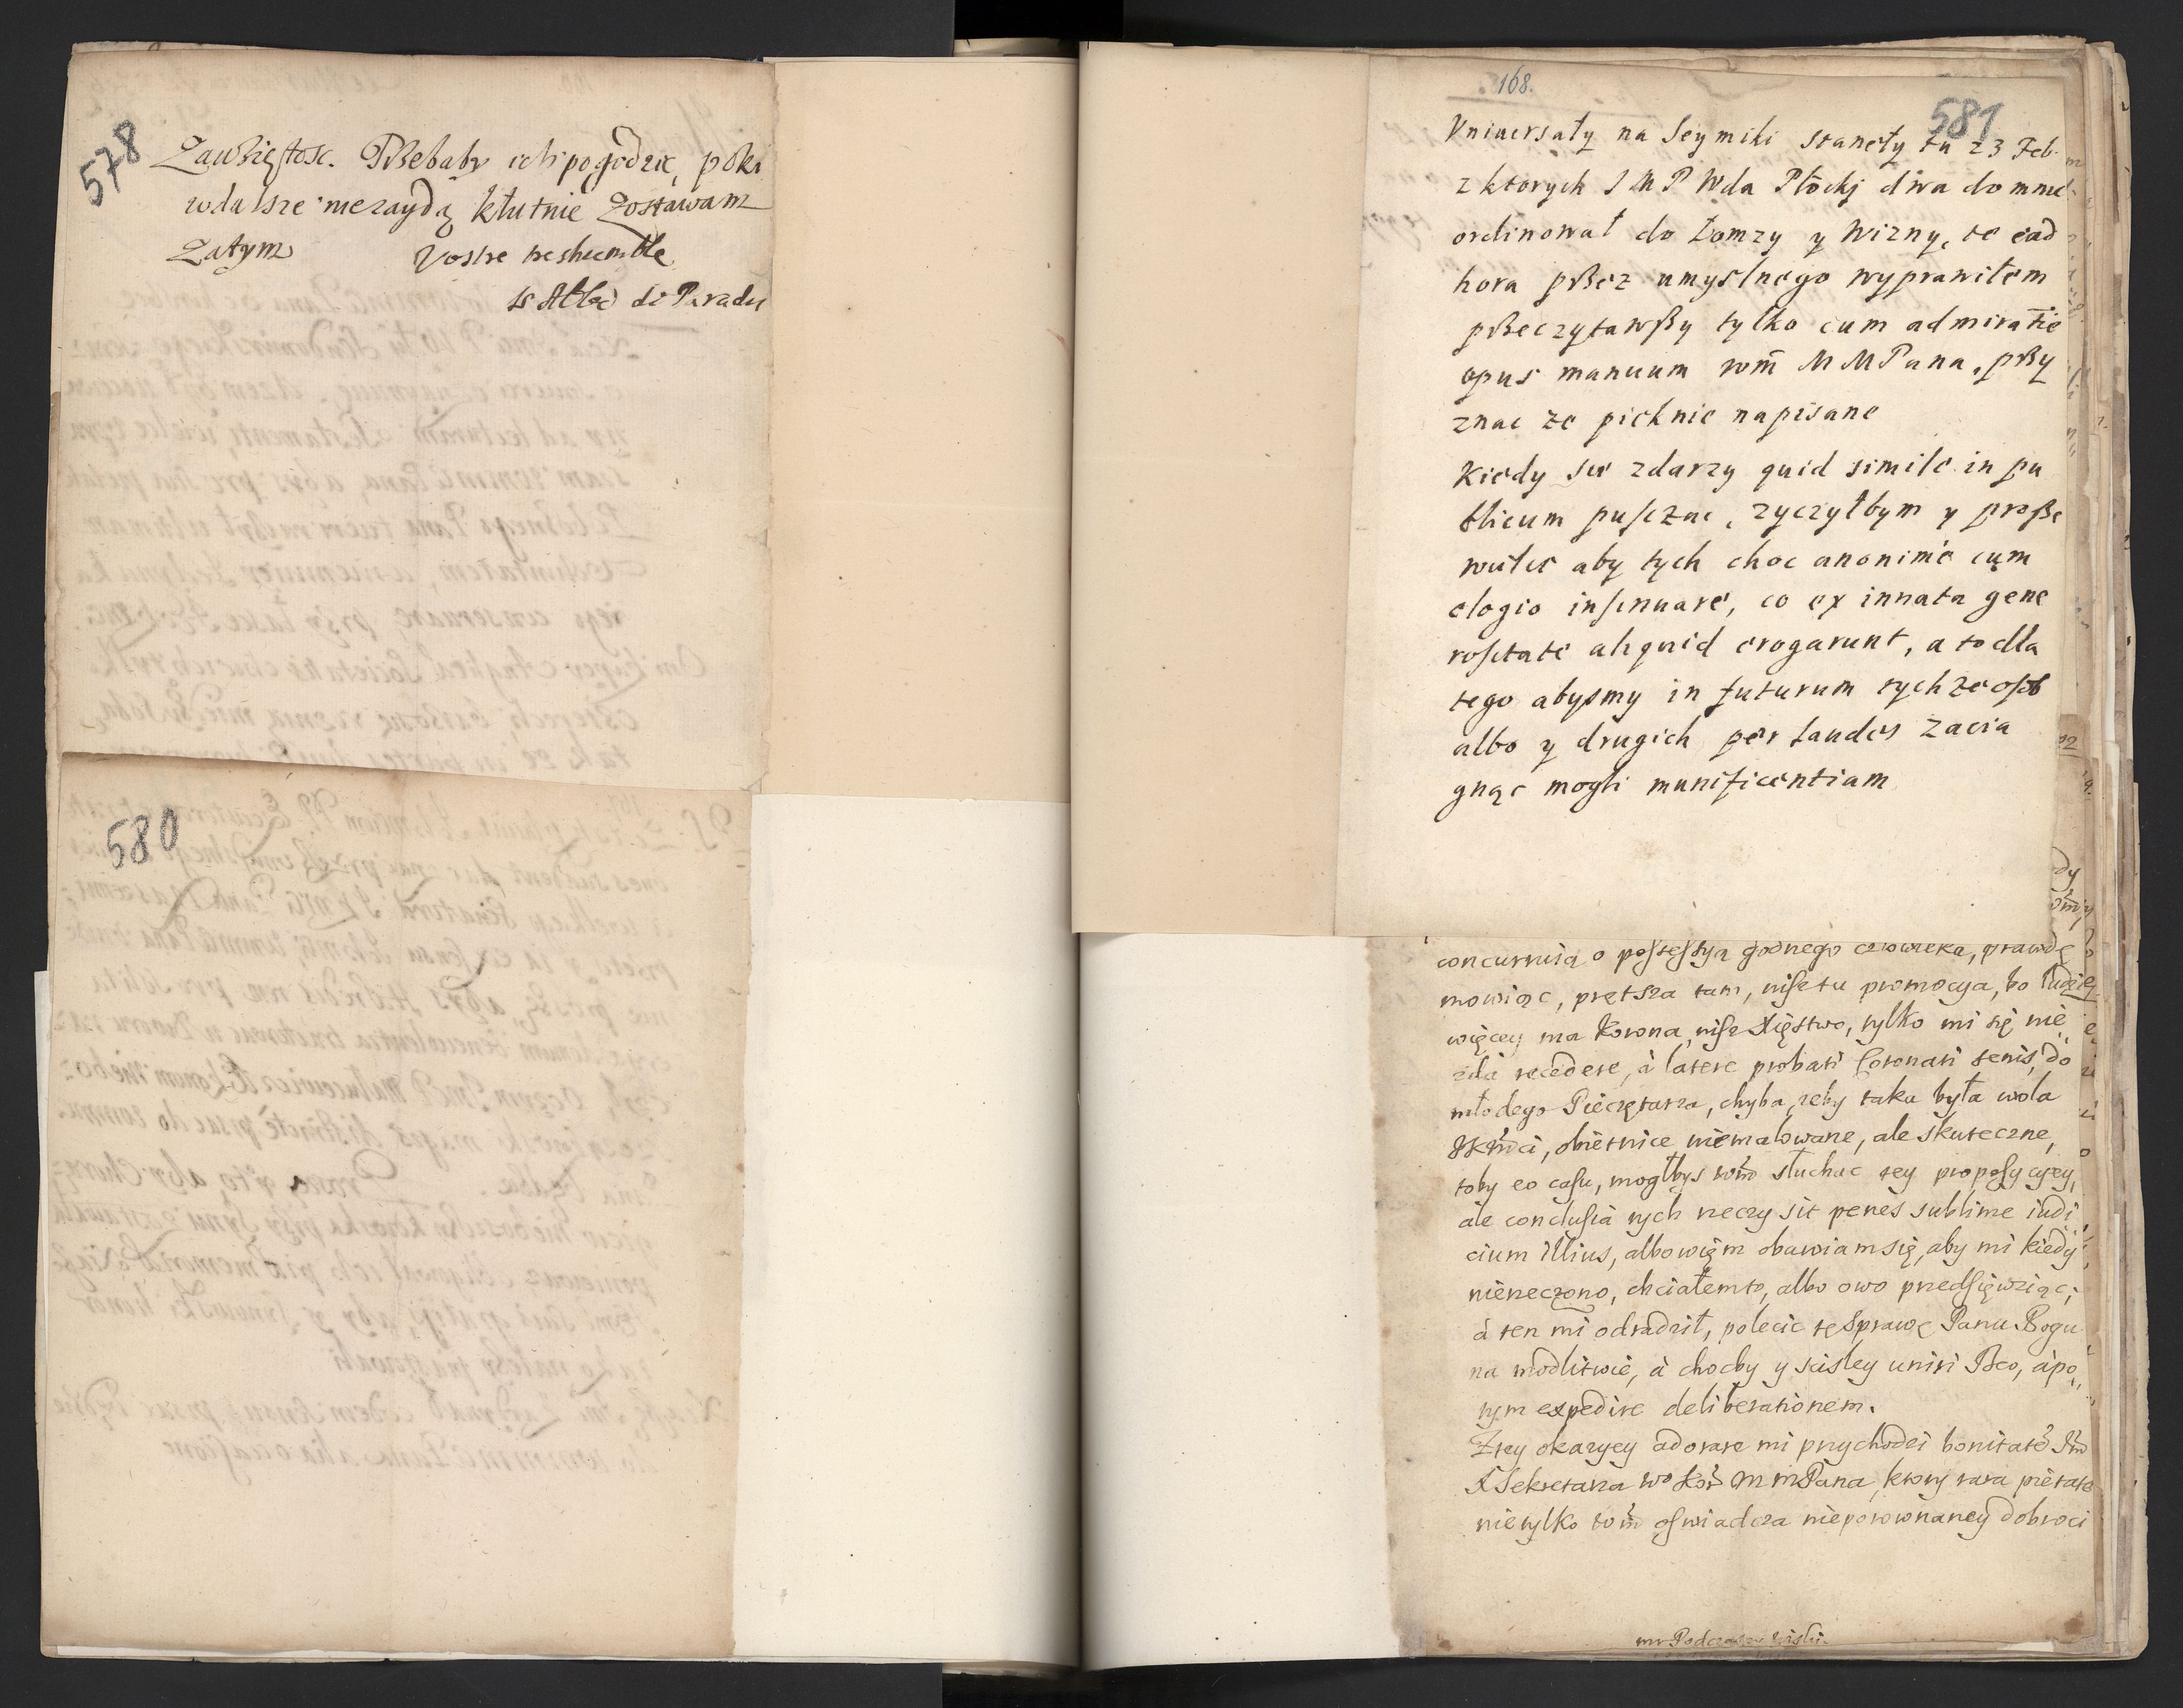 578
Zawziętosc. Trzebaby ich pogodzic, poki
w dalsze nie zaydą kłutnie Zostawam
Zatym Vostre treshumble
580
168.
581
Vniwersały na Seymiki stanęły tu 23 Feb.
z ktorych J M P Wda Płocki dwa do mnie
ordinował do Łomzy y Wizny, te ead
hora przez umyslnego wyprawiłem
przeczytawszy tylko cum admiratie
opus manuum wm̃ M M Pana, przy
znac ze pieknie napisane
Kiedy sie zdarzy quid simile in pu
blicum pusczac, zyczyłbym y prosze
aby tych choc anonime cum
elogio insinuare, co ex innata gene
rositate aliquid erogarunt, a to dla
tego abysmy in futurum tychze osob
albo y drugich per laudes zacia
gnąc mogli munificentiam
concurruią o possessyą godnego człowieka, prawdę
mowiąc, prętsza tam, nisz tu promocya, bo ludzi
więcey ma Korona, nisz Xięstwo, tylko mi się nie
zda recedere, à latere probati Coronati senis, do
młodego Pieczętarza, chyba, zeby taka była wola
obietnice niemalowane, ale skuteczne,
toby eo casu, mogłbys wm̃ słuchac tey propozycyey,
ale conclusia tych rzeczy sit penes sublime iudi
cium illius, albowięm obawiam się, aby mi kiedy
nierzeczono, chciałem to, albo owo przedsięwziąc;
à ten mi odradził, polecic tę sprawę Panu Bogu
na modlitwie, à chocby y scisley uniri Deo, àpo
tym expedire deliberationem.
Z tey okazyey adorare mi przychodzi bonitatẽ Jm̃
X Sekretarza M m Pana, ktory rara pietate
nietylko wm̃ oswiadcza nieporownaney dobroci